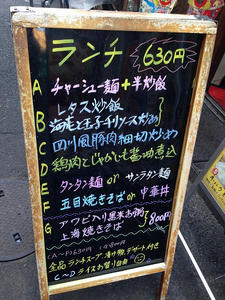 ランチ 630円
A チャーシュー麺+半炒飯
B レタス炒飯
海老と玉子チリソース炒め
C 四川風豚肉細切り炒め
D 鶏肉とじゃがいも醤油煮込
E タンタン麺 or サンラタン麺
F 五目焼きそば or 中華丼
G アワビ入り黒米お粥
上海焼きそば 800円
(A~F)630円 (G)800円
全品ランチスープ、漬け物、デザート付き
C~D ライスお替り自由